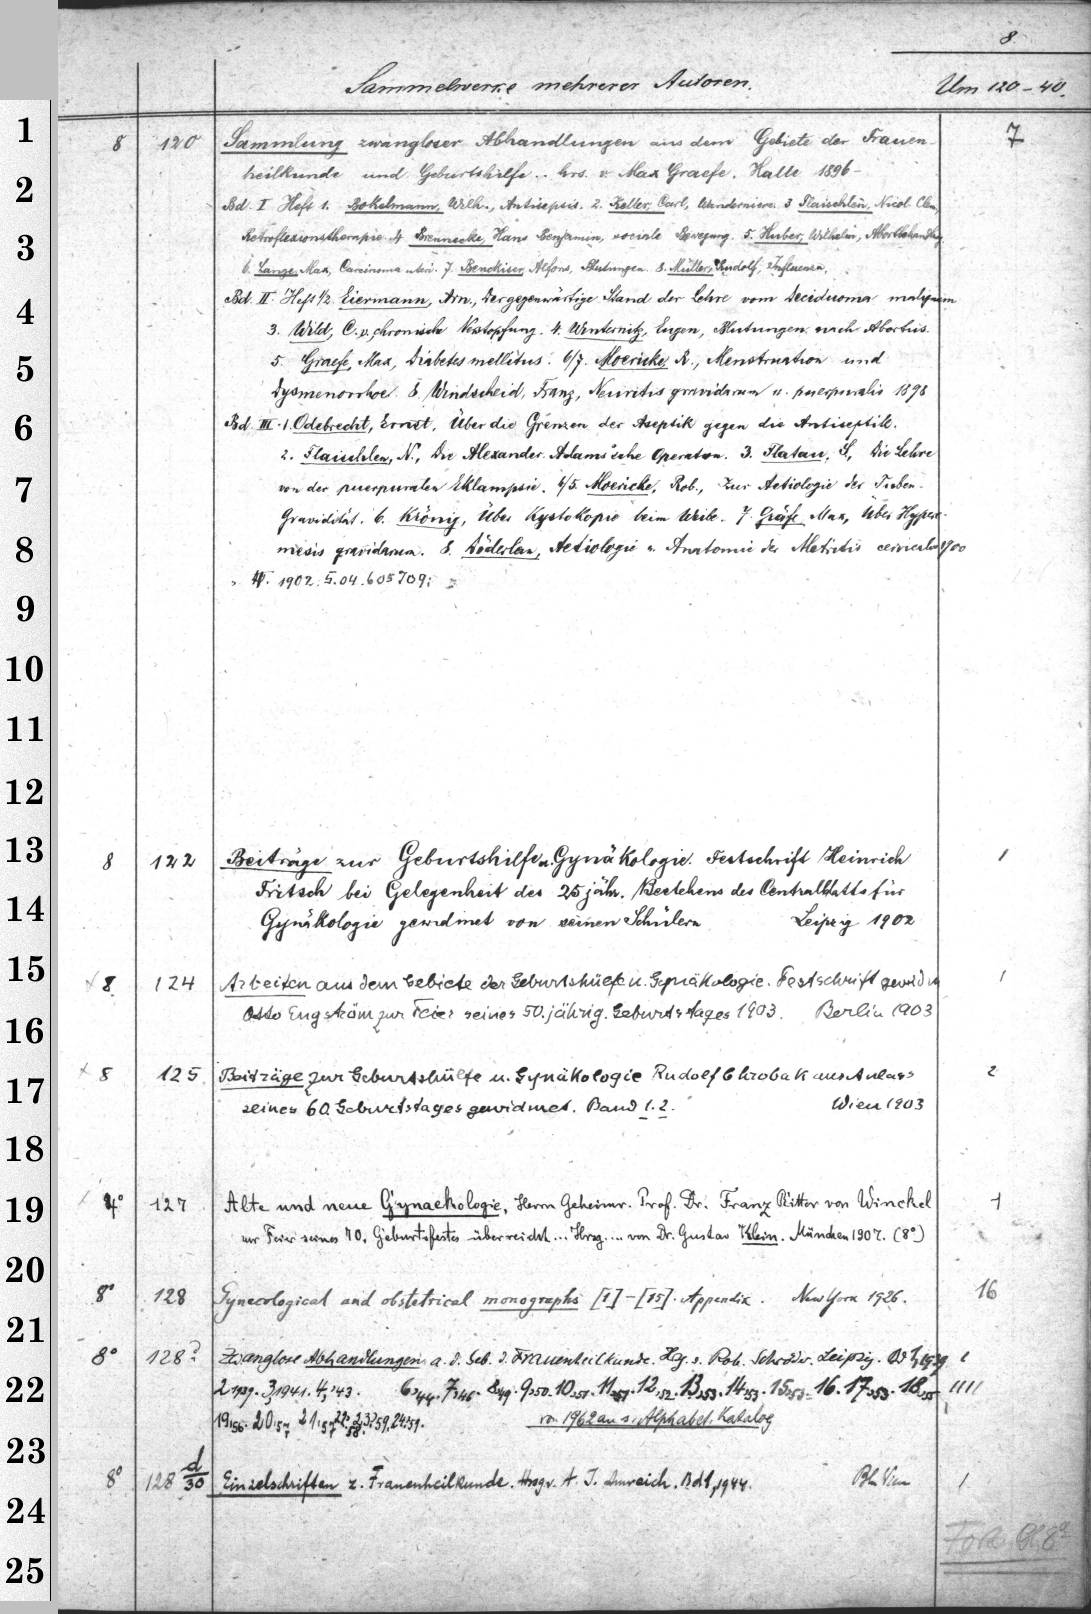 8.
Sammelwerke mehrerer Autoren. Um 120-40.
8 120 Sammlung zwangloser Abhandlungen aus dem Gebiete der Frauen- 7
heilkunde und Geburtshilfe.. hrs. v. Max Graefe. Halle 1896-
Bd. I Heft 1. Bokelmann, Wilh., Antisepsis. 2. Keller, Carl, Wanderniere. 3 Flaischlen, Nicol.
Retroflexionstherapie. 4 Brennecke, Hans Benjamin, sociale Bewegung. 5. Huber, Wilhelm,
6. Lange, Max, Carcinoma uteri. 7. Benckiser, Alfons, Blutungen. 8. Müller, Rudolf, Influenza.
Bd. II. Heft 1/2. Eiermann, Arn., Der gegenwärtige Stand der Lehre vom Deciduoma malignum
3. Wild, C. v., chronische Verstopfung. 4. Winternitz, Eugen, Blutungen nach Abortus.
5. Graefe, Max, Diabetes mellitus. 6/7. Moericke, R., Menstruation und
Dysmenorrhoe. 8. Windscheid, Franz, Neuritis gravidarum u. puerpuralis 1898
Bd. III. 1. Odebrecht, Ernst, Über die Grenzen der Aseptik gegen die Antiseptik.
2. Flaischlen, N., Die Alexander-Adams'sche Operation. 3. Flatau, S., Die Lehre
von der puerpuralen Eklampsie. 4/5. Moericke, Rob., Zur Aetiologie der Tuben-
Gravidität. 6. Krönig, Über Kystokopie beim Weibe. 7. Gräfe Max, Über Hypere-
mesis gravidarum. 8. Döderlein, Aetiologie u. Anatomie der Metritis cervicalis 1900
" IV. 1902. 5.04. 605 709;
8 122 Beiträge zur Geburtshilfe u. Gynäkologie. Festschrift Heinrich 1
Fritsch bei Gelegenheit des 25jähr. Bestehens des Centralblatts für
Gynäkologie gewidmet von seinen Schülern Leipzig 1902
8 124 Arbeiten aus dem Gebiete der Geburtshülfe u. Gynäkologie. Festschrift gewidm 1
Otto Engström zur Feier seines 50.jährig. Geburtstages 1903. Berlin 1903
8 125 Beiträge zur Geburtshülfe u. Gynäkologie Rudolf Chrobak aus Anlass 2
seines 60. Geburtstages gewidmet. Band 1. 2. Wien 1903
4° 127 Alte und neue Gynaekologie, Herrn Geheimr. Prof. Dr. Franz Ritter von Winckel 1
zur Feier seines 70. Geburtsfestes überreicht... Hrsg.... von Dr. Gustav Klein. München 1907. (8°)
8° 128 Gynecological and obstetrical monographs [1]-[15]. Appendix. New York 1926. 16
8° 128? Zwanglose Abhandlungen a. d. Geb. d. Frauenheilkunde. Hg. v. Rob. Schröder. Leipzig. Bd 1, 1939
2 1939. 3,1941. 4,'43. 6,44. 7,46. 8,49. 9,50. 10,51. 11,51. 12,52. 13,53. 14,53. 15,53. 16. 17,53. 18,55
19,56. 20,57 21,57 22,58. 23,59. 24,59. von 1962 an s. Alphabet. Katalog
8° 128 d/30 Einzelschriften z. Frauenheilkunde. Hrsg v. A. I. Amreich. Bd 1, 1944. Bln Wien 1
1
2
3
4
5
6
7
8
9
10
11
12
13
14
15
16
17
18
19
20
21
22
23
24
25